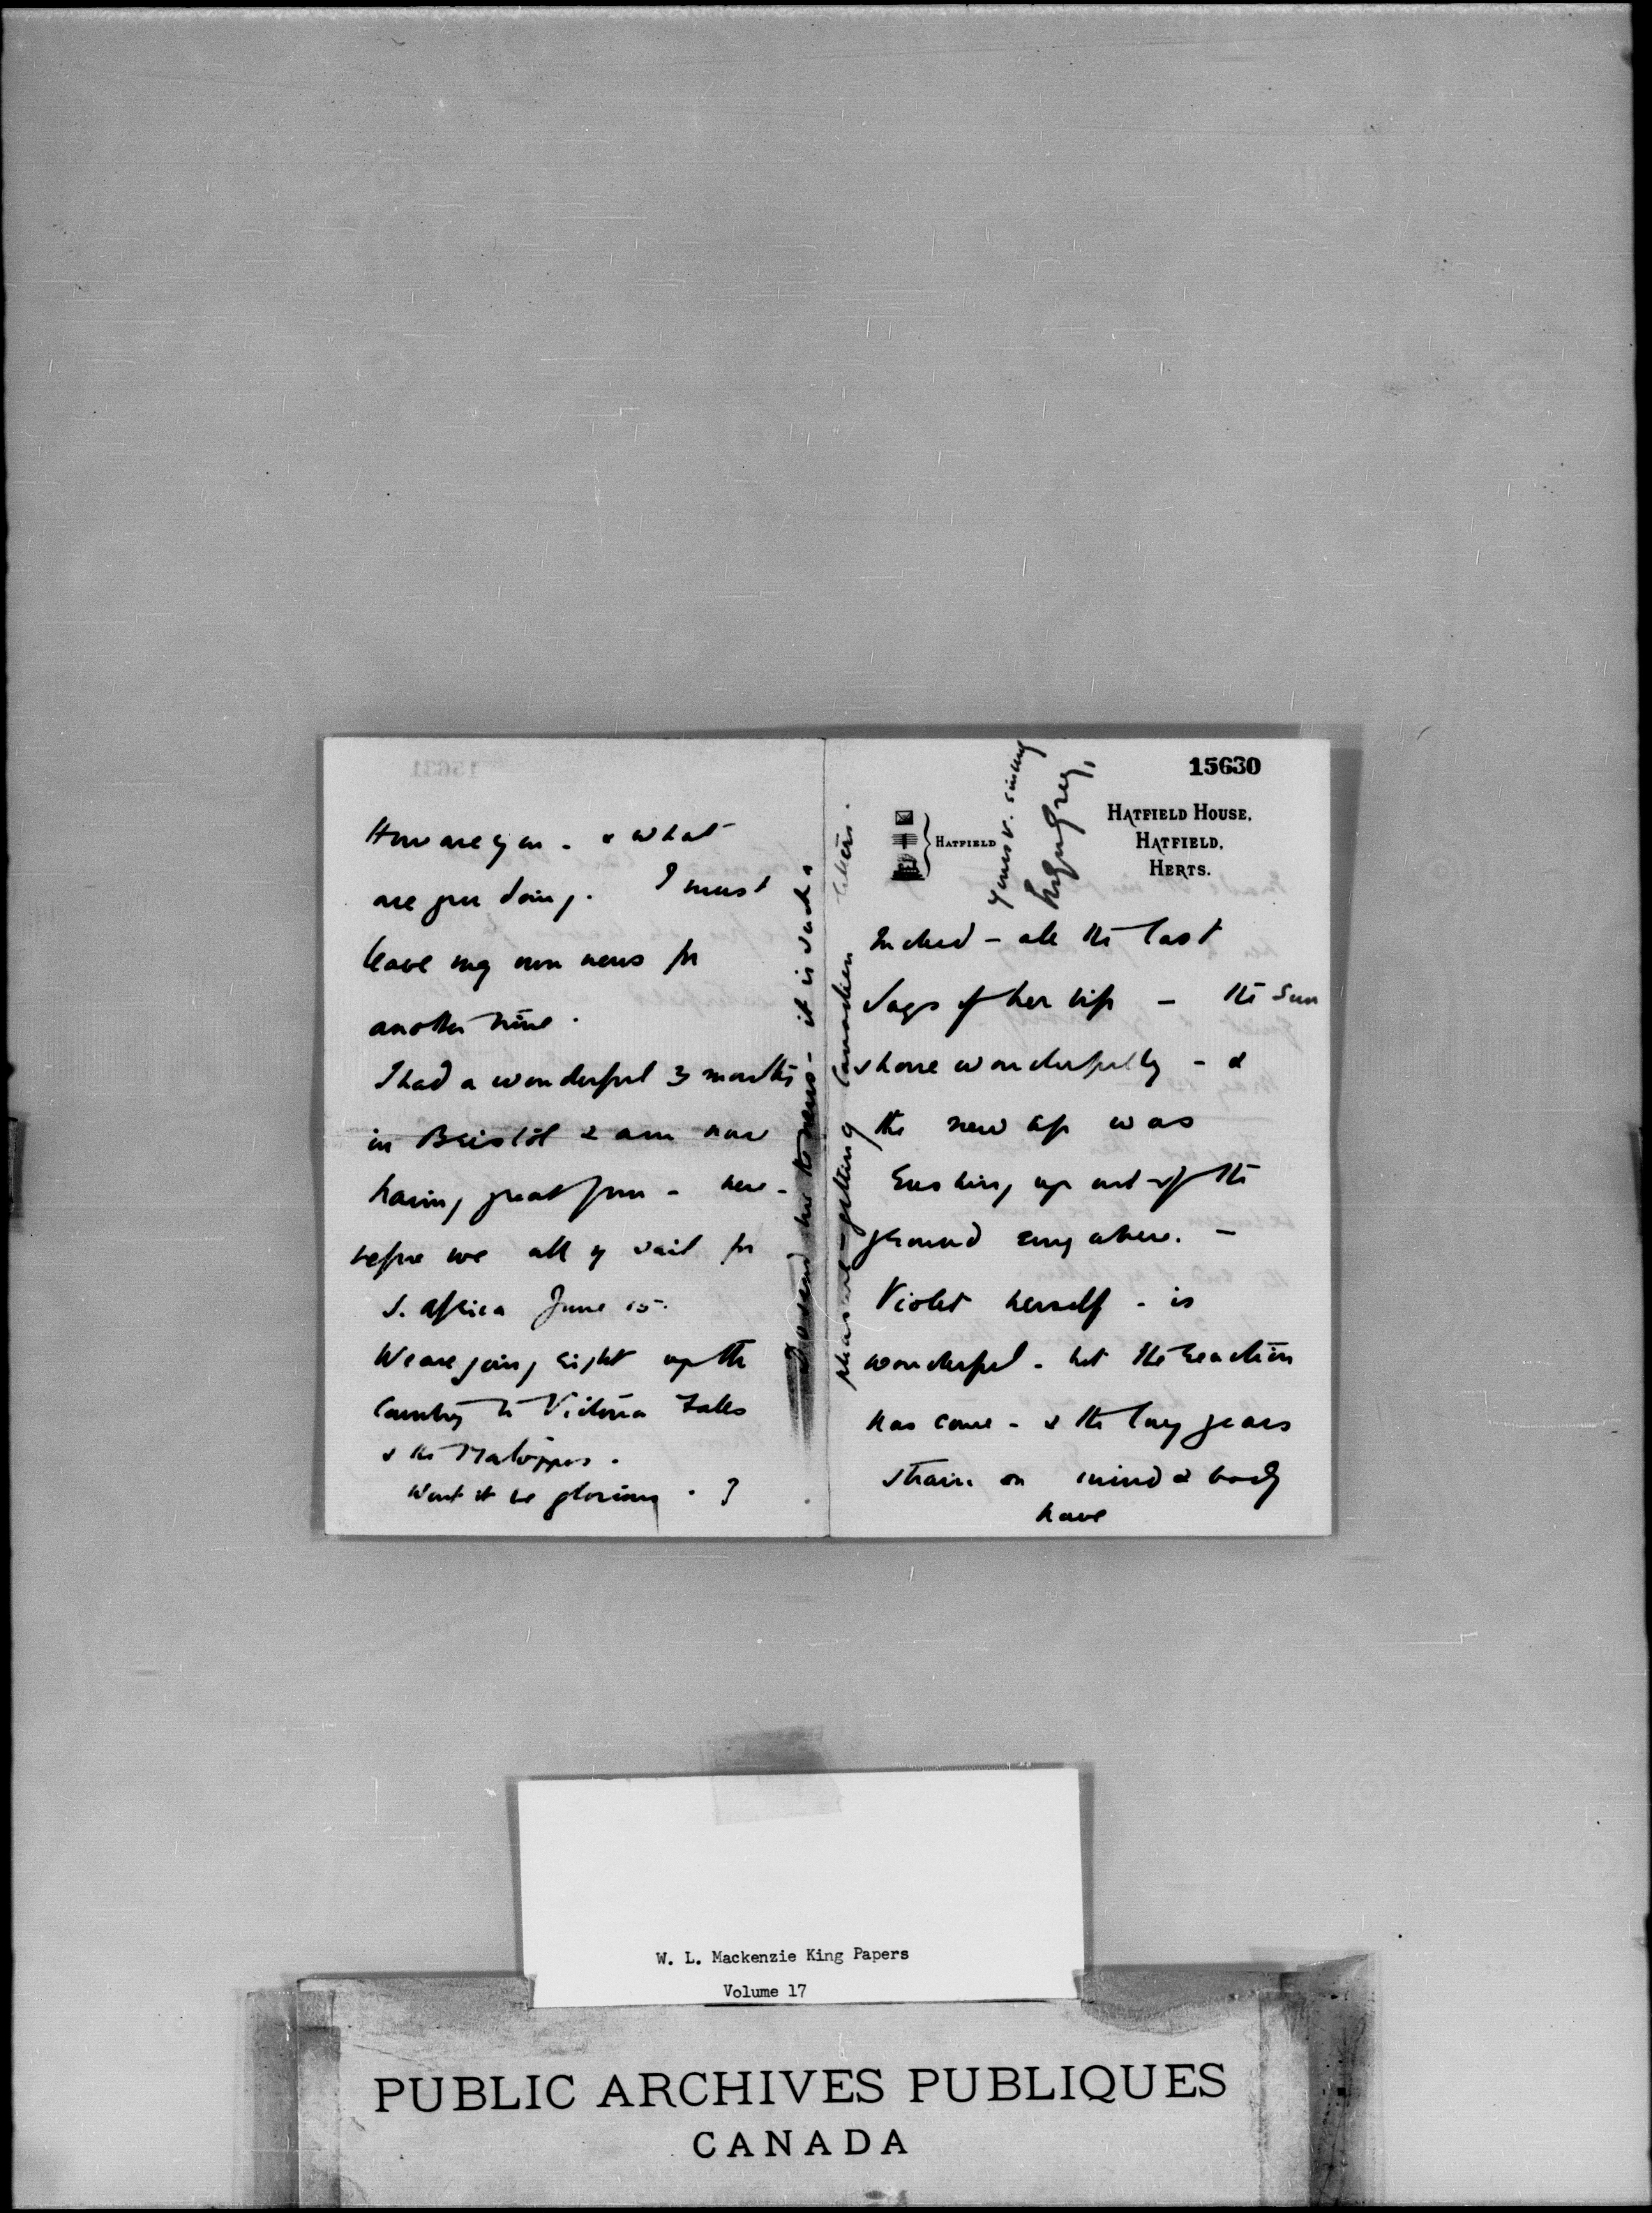 How are you - & what
are you doing. I must
leave my own news for
another time.
I had a wonderful 3 months
in Bristol & am now
having great fun - here -
before we all sail for
S. Africa June 15.
We are going right up the
Country to Victoria Falls
& the Matoppos.
Wont it be glorious . ?
Do send me the news - it is such a
pleasure - getting Canadian letters.
15630
HATFIELD HOUSE,
HATFIELD,
HERTS.
HATFIELD
Yours v. sincerely
Grey,
Indeed - all the last
days of her life - the sun
shone wonderfully - &
the new life was
Gushing up out of the
ground everywhere. -
Violet herself - is
wonderful - but the reaction
has come - & the long years
strain on mind & body
have
W. L. Mackenzie King Papers
Volume 17
PUBLIC ARCHIVES PUBLIQUES
CANADA